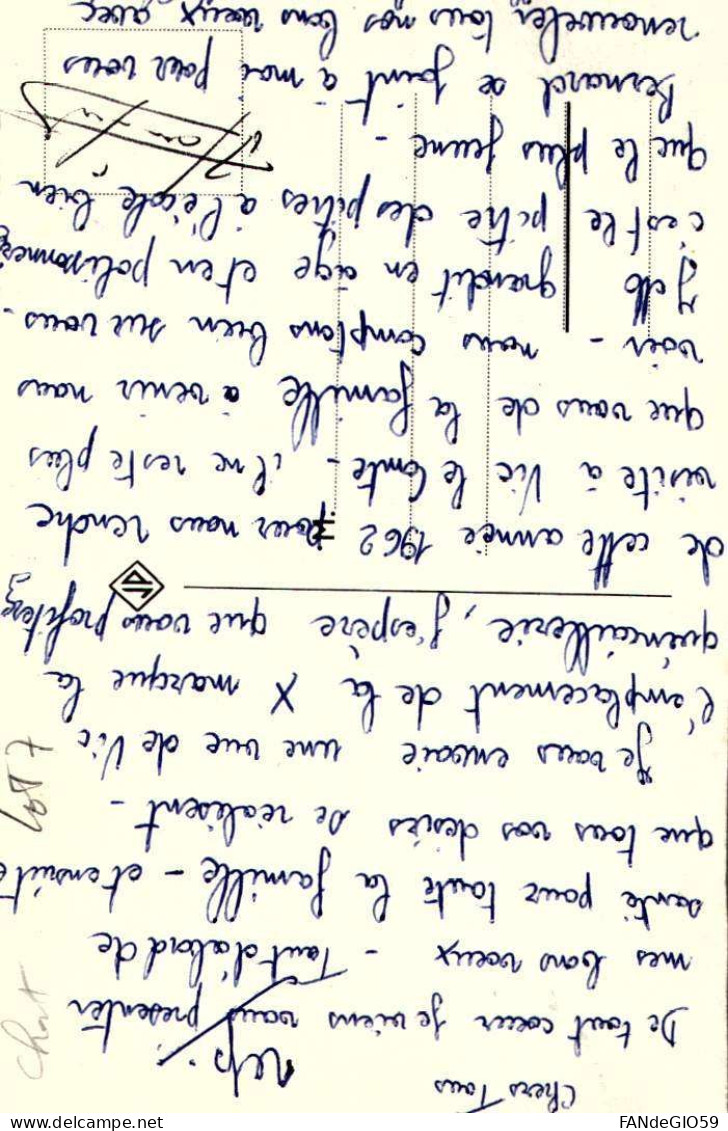 Chers Tous
De tout coeur je viens vous presenter
mes bons voeux - Tout d'abord de
santé pour toute la famille - et ensuite
que tous vos desirs se réalisent -
Je vous envoie une vue de Vic
l'emplacement de la X marque la
quincaillerie, j'espère que vous profiterez
de cette année 1962 pour nous rendre
visite à Vic le Comte - il ne reste plus
que vous de la famille à venir nous
voir - nous comptons bien sur vous -
grandit en age et en polissonnerie
c'est le pitre des pitres à l'école bien
que le plus jeune -
Bernard se joint à moi pour vous
renouveler tous nos bons voeux avec
Chat
FANdeGIO59